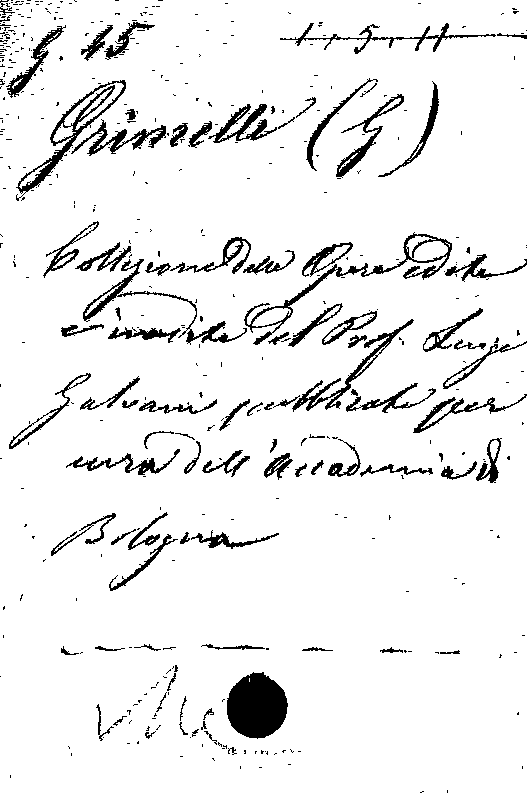 G. 45 1, 5, 11
Grimelli (G)
Collezione delle Opere edite
e inedite del Prof. Luigi
Galvani pubblicate per
cura dell'Accademia di
Bologna